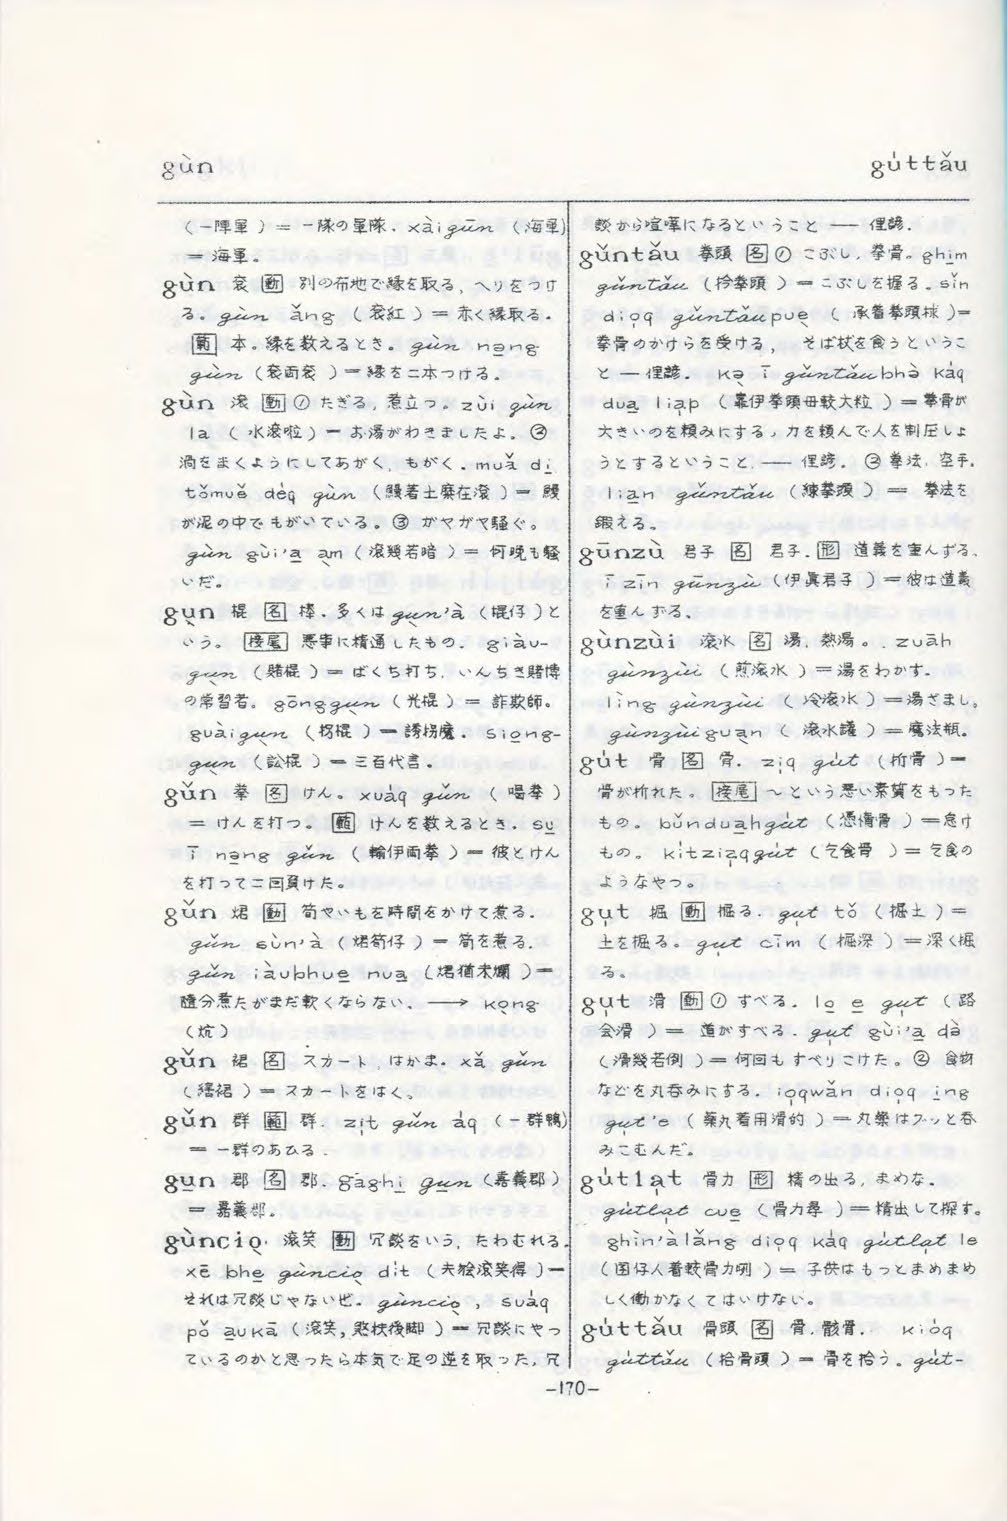 gùn
gu̍ttǎu
(一陣軍 ) = 一隊の軍隊. xàigūn (海軍)
= 海軍。
gùn 袞 動 別の布地で縁を取る, ヘリをつけ
る。gùn ǎng ( 袞紅 ) = 赤く縁取る。
範 本。縁を数えるとき。gùn nə̱ng
gùn (袞両袞 ) = 縁を二本つける。
gùn 滾 動 ① たぎる, 煮立つ。zùi gùn
la ( 水滾啦) = お湯がわきましたよ。②
渦をまくようにしてあがく, もがく。muǎ di̱
tǒmuě dėq gùn (鰻著土糜在滾 ) = 鰻
が泥の中でもがいている。③ ガヤガヤ騒ぐ。
gùn gùi'a̱ a̱m (滾幾若暗 ) = 何晩も騒
いだ。
gu̖n 棍 名 棒. 多くは gu̖n'à (棍仔) と
いう。接尾 悪事に精通したもの. giàu-
gu̖n (賭棍 ) = ばくち打ち, いんちき賭博
の常習者。gōnggu̖n (光棍 ) = 詐欺師。
guàigu̖n (拐棍 ) = 誘拐魔. sio̱ng-
gu̖n (訟棍 ) = 三百代言。
gǔn 拳 名 けん。xuȧq gǔn ( 喝拳 )
= けんを打つ。範 けんを数えるとき. su̱
ī nə̱ng gǔn ( 輸伊両拳 ) = 彼とけん
を打って二回負けた。
gǔn 焜 動 筍やいもを時間をかけて煮る.
gǔn sùn'à ( 焜筍仔 ) = 筍を煮る.
gǔn iàubhue̱ nua̱ (焜猶未爛 ) =
随分煮たがまだ軟くならない. ⟶ ko̖ng
(炕)
gǔn 裙 名 スカート, はかま. xǎ gǔn
( 縖裙 ) = スカートをはく。
gǔn 群 範 群. zi̍t gǔn a̍q ( 一群鴨)
= 一群のあひる.
gu̱n 郡 名 郡. gāghi̱ gu̱n (嘉義郡 )
= 嘉義郡。
gùncio̖ 滾笑 動 冗談をいう, たわむれる.
xē bhe̱ gùncio̖ di̍t (夫𣍐滾笑得 ) =
それは冗談じゃないぜ. gùncio̖ , suȧq
pǒ a̱ukā (滾笑, 煞扶後脚 ) = 冗談にやっ
ているのかと思ったら本気で足の逆を取った, 冗
談から喧嘩になるということ —— 俚諺.
gǔntǎu 拳頭 名 ① こぶし, 拳骨。ghi̱m
gǔntǎu (扲拳頭 ) = こぶしを握る。sīn
dio̩q gǔntǎupue̖ ( 承着拳頭粃 ) =
拳骨のかけらを受ける, そば杖を食うというこ
と — 俚諺. kə̖ ī gǔntǎubhə̀ káq
dua̱ lia̩p (靠伊拳頭母較大粒 ) = 拳骨が
大きいのを頼みにする, 力を頼んで人を制圧しよ
うとするということ. —— 俚諺. ② 拳法, 空手.
lia̱n gǔntǎu (練拳頭 ) = 拳法を
鍛える。
gūnzù 君子 名 君子. 形 道義を重んずる.
ī zīn gūnzù (伊真君子 ) = 彼は道義
を重んずる.
gùnzùi 滾水 名 湯, 熱湯。. zuāh
gùnzùi ( 煎滾水 ) = 湯をわかす.
lìng gùnzùi ( 冷滾水 ) = 湯ざまし。
gùnzùigua̖n ( 滾水罐 ) = 魔法瓶.
gu̍t 骨 名 骨. zi̩q gu̍t (折骨 ) =
骨が折れた。接尾 〜という悪い素質をもった
もの。bǔndua̱hgu̍t (憑惰骨 ) = 怠け
もの。ki̍tzia̩qgu̍t (乞食骨 ) = 乞食の
ようなやつ。
gu̩t 掘 動 掘る. gu̩t tǒ ( 掘土 ) =
土を掘る。gu̩t cīm ( 掘深 ) = 深く掘
る。
gu̩t 滑 動 ① すべる. lo̱ e̱ gu̩t ( 路
会滑 ) = 道がすべる. gu̩t gùi'a̱ dà
( 滑幾若倒 ) = 何回もすべりこけた。② 食物
などを丸呑みにする. io̩qwǎn dio̩q i̱ng
gu̩t 'e ( 藥丸着用滑的 ) = 丸藥はスッと呑
みこむんだ。
gu̍tla̩t 骨力 形 精の出る, まめな.
gu̍tla̩t cue̱ (骨力尋 ) = 精出して探す。
ghìn'àlǎng dio̩q káq gu̍tla̩t le
(囝仔人着較骨力咧 ) = 子供はもっとまめまめ
しく働かなくてはいけない。
gu̍ttǎu 骨頭 名 骨. 骸骨. kióq
gu̍ttǎu (拾骨頭 ) = 骨を拾う。gu̍t-
-170-